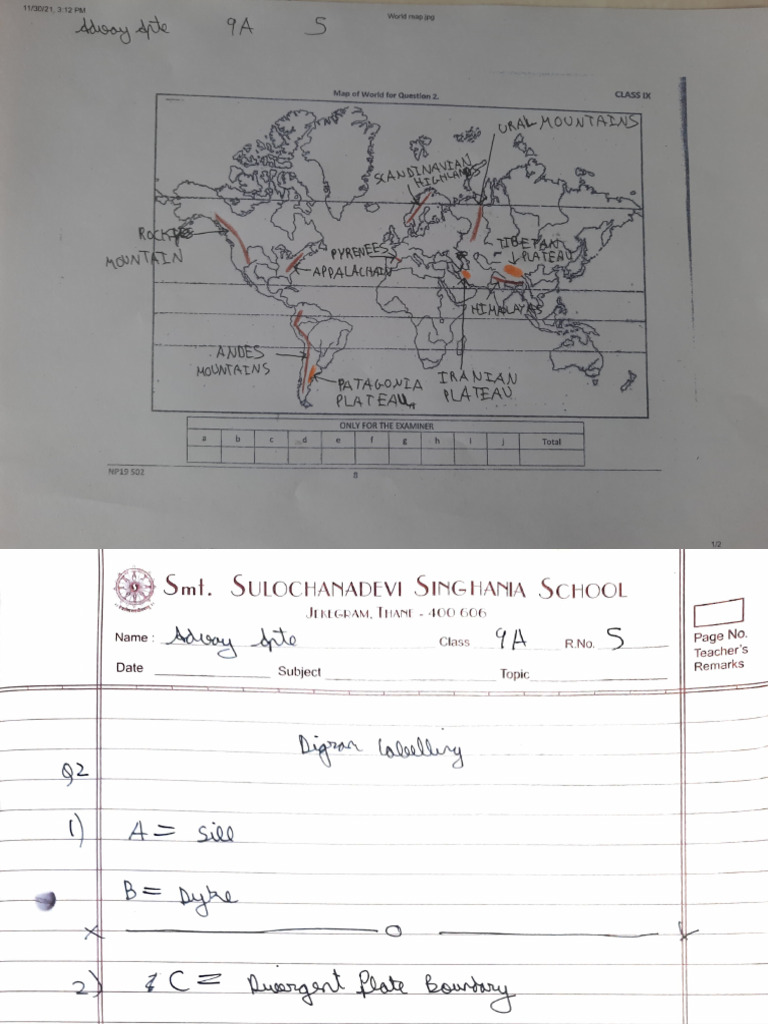 11/30/21, 3:12 PM
World map.jpg
Advay Apte 9A 5
Map of World for Question 2. CLASS IX
URAL MOUNTAINS
SCANDINAVIAN
HIGHLANDS
ROCKY
MOUNTAIN
PYRENEES
APPALACHAIN
TIBETAN
PLATEAU
HIMALAYAS
ANDES
MOUNTAINS
PATAGONIA
PLATEAU
IRANIAN
PLATEAU
ONLY FOR THE EXAMINER
a b c d e f g h i j Total
NP19 502
8
1/2
Smt. SULOCHANADEVI SINGHANIA SCHOOL
JEKEGRAM, THANE - 400 606
Name : Advay Apte Class 9A R.No. 5
Page No.
Teacher's
Remarks
Date Subject Topic
Digram labelling
Q2
1) A = Sill
B = Dyke
2) C = Divergent Plate Boundary